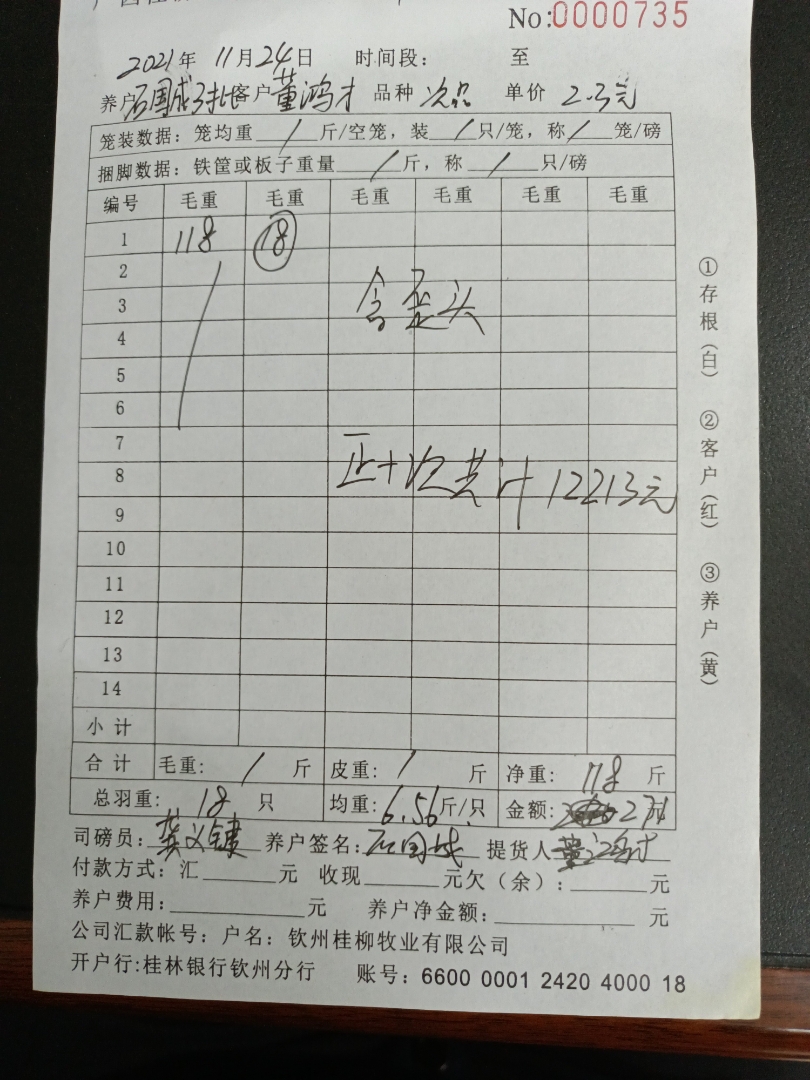 No:0000735
2021年 11月24日 时间段: 至
养户 石国成 客户 董鸿才 品种 次品 单价 2.3元
笼装数据: 笼均重 / 斤/空笼, 装 / 只/笼, 称 / 笼/磅
捆脚数据: 铁筐或板子重量 / 斤, 称 / 只/磅
编号 毛重 毛重 毛重 毛重 毛重 毛重
1 118 18
2
3 含歪头
4
5
6
7
8 正+次共计12213元
9
10
11
12
13
14
小计
合计 毛重: / 斤 皮重: / 斤 净重: 118 斤
总羽重: 18 只 均重: 6.56斤/只 金额: 271
司磅员: 养户签名: 提货人
付款方式: 汇 元 收现 元欠(余): 元
养户费用: 元 养户净金额: 元
公司汇款帐号: 户名: 钦州桂柳牧业有限公司
开户行:桂林银行钦州分行 账号: 6600 0001 2420 4000 18
①存根(白) ②客户(红) ③养户(黄)